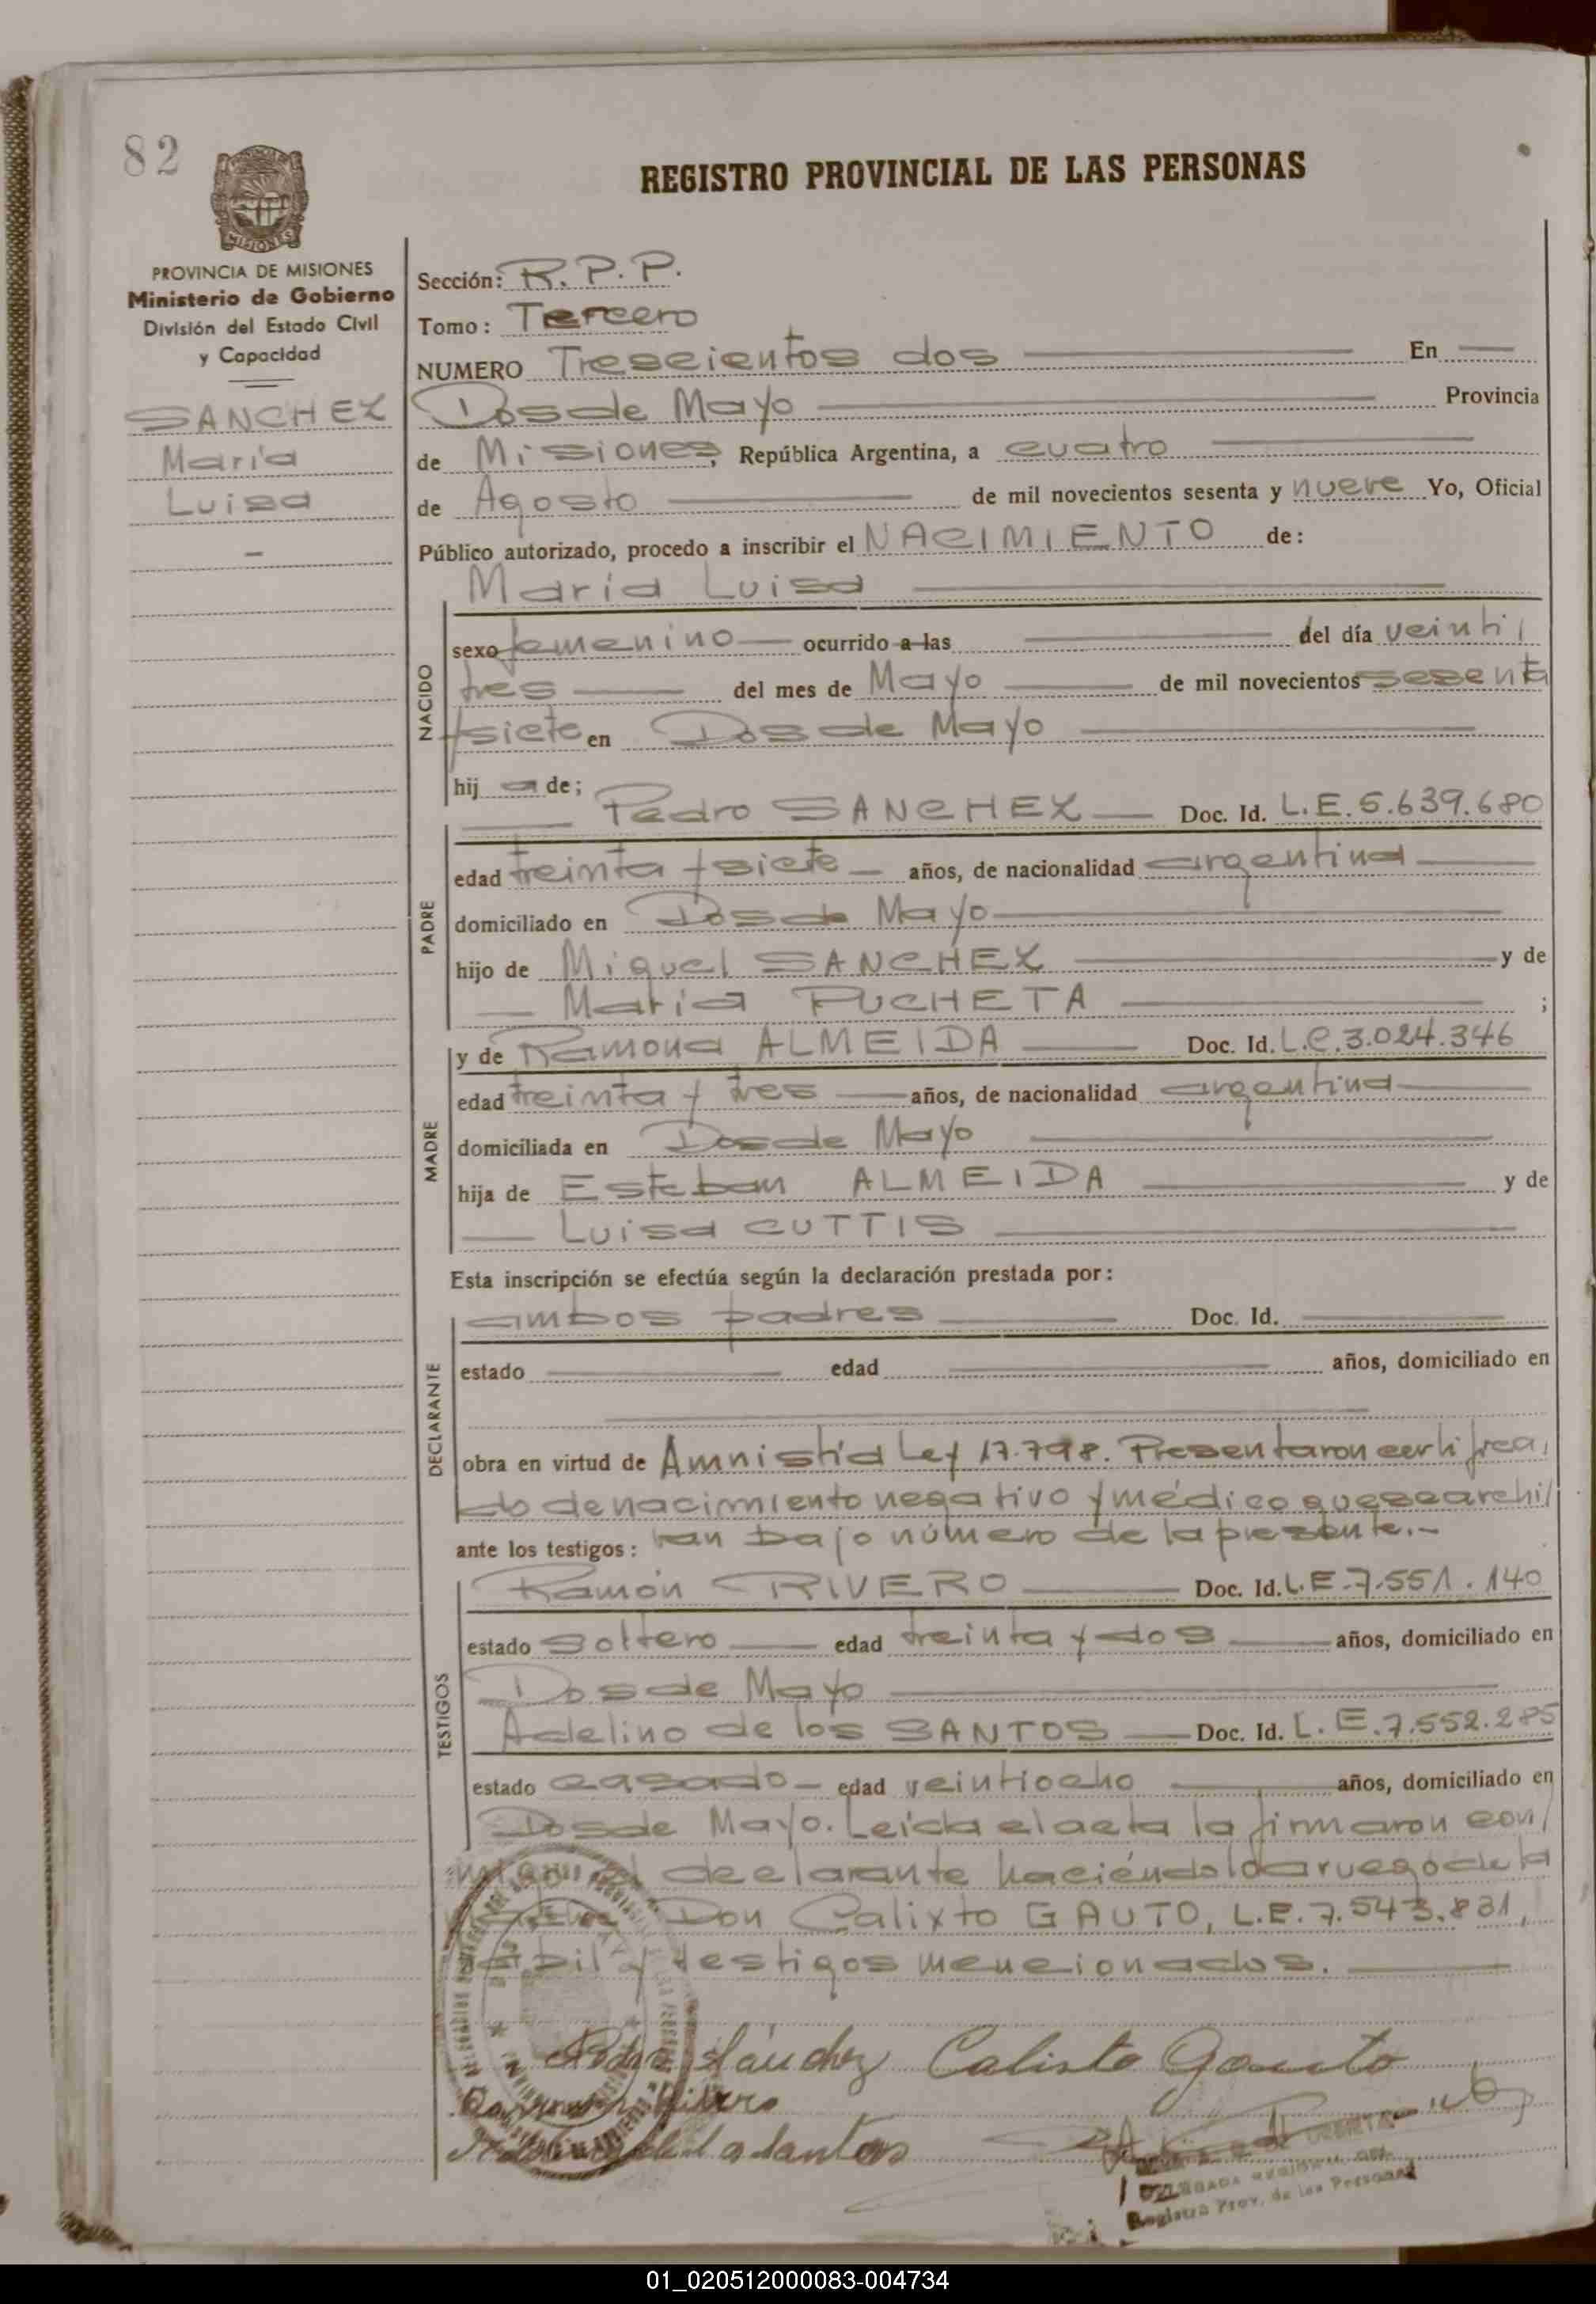 82
REGISTRO PROVINCIAL DE LAS PERSONAS
MISIONES
PROVINCIA DE MISIONES
Ministerio de Gobierno
División del Estado Civil
y Capacidad
SANCHEZ
María
Luisa
Sección: R. P. P.
Tomo: Tercero
NUMERO Trescientos dos En
Dos de Mayo Provincia
de Misiones, República Argentina, a cuatro
de Agosto de mil novecientos sesenta y nueve Yo, Oficial
Público autorizado, procedo a inscribir el NACIMIENTO de:
María Luisa
NACIDO
sexo femenino ocurrido a las del día veinti
tres del mes de Mayo de mil novecientos sesenta
y siete en Dos de Mayo
hij a de;
Pedro SANCHEZ Doc. Id. L.E. 5.639.680
PADRE
edad treinta y siete años, de nacionalidad argentina
domiciliado en Dos de Mayo
hijo de Miguel SANCHEZ y de
María PUCHETA ;
y de Ramona ALMEIDA Doc. Id. L.C. 3.024.346
MADRE
edad treinta y tres años, de nacionalidad argentina
domiciliada en Dos de Mayo
hija de Esteban ALMEIDA y de
Luisa CUTTIS
Esta inscripción se efectúa según la declaración prestada por:
ambos padres Doc. Id.
DECLARANTE
estado edad años, domiciliado en
obra en virtud de Amnistía Ley 17.798. Presentaron certifica
do de nacimiento negativo y médico que se archi
ante los testigos: van bajo número de la presente.-
Ramón RIVERO Doc. Id. L.E. 7.551.140
TESTIGOS
estado soltero edad treinta y dos años, domiciliado en
Dos de Mayo
Adelino de los SANTOS Doc. Id. L.E. 7.552.285
estado casado edad veintiocho años, domiciliado en
Dos de Mayo. Leída el acta la firmaron con
migo el declarante haciéndolo a ruego de la
Don Calixto GAUTO, L.E. 7.543.831,
hábil y testigos mencionados.
Pedro Sánchez Calisto Gauto
Rivero
santos
DELEGADA
Registro Prov. de las Personas
01_020512000083-004734